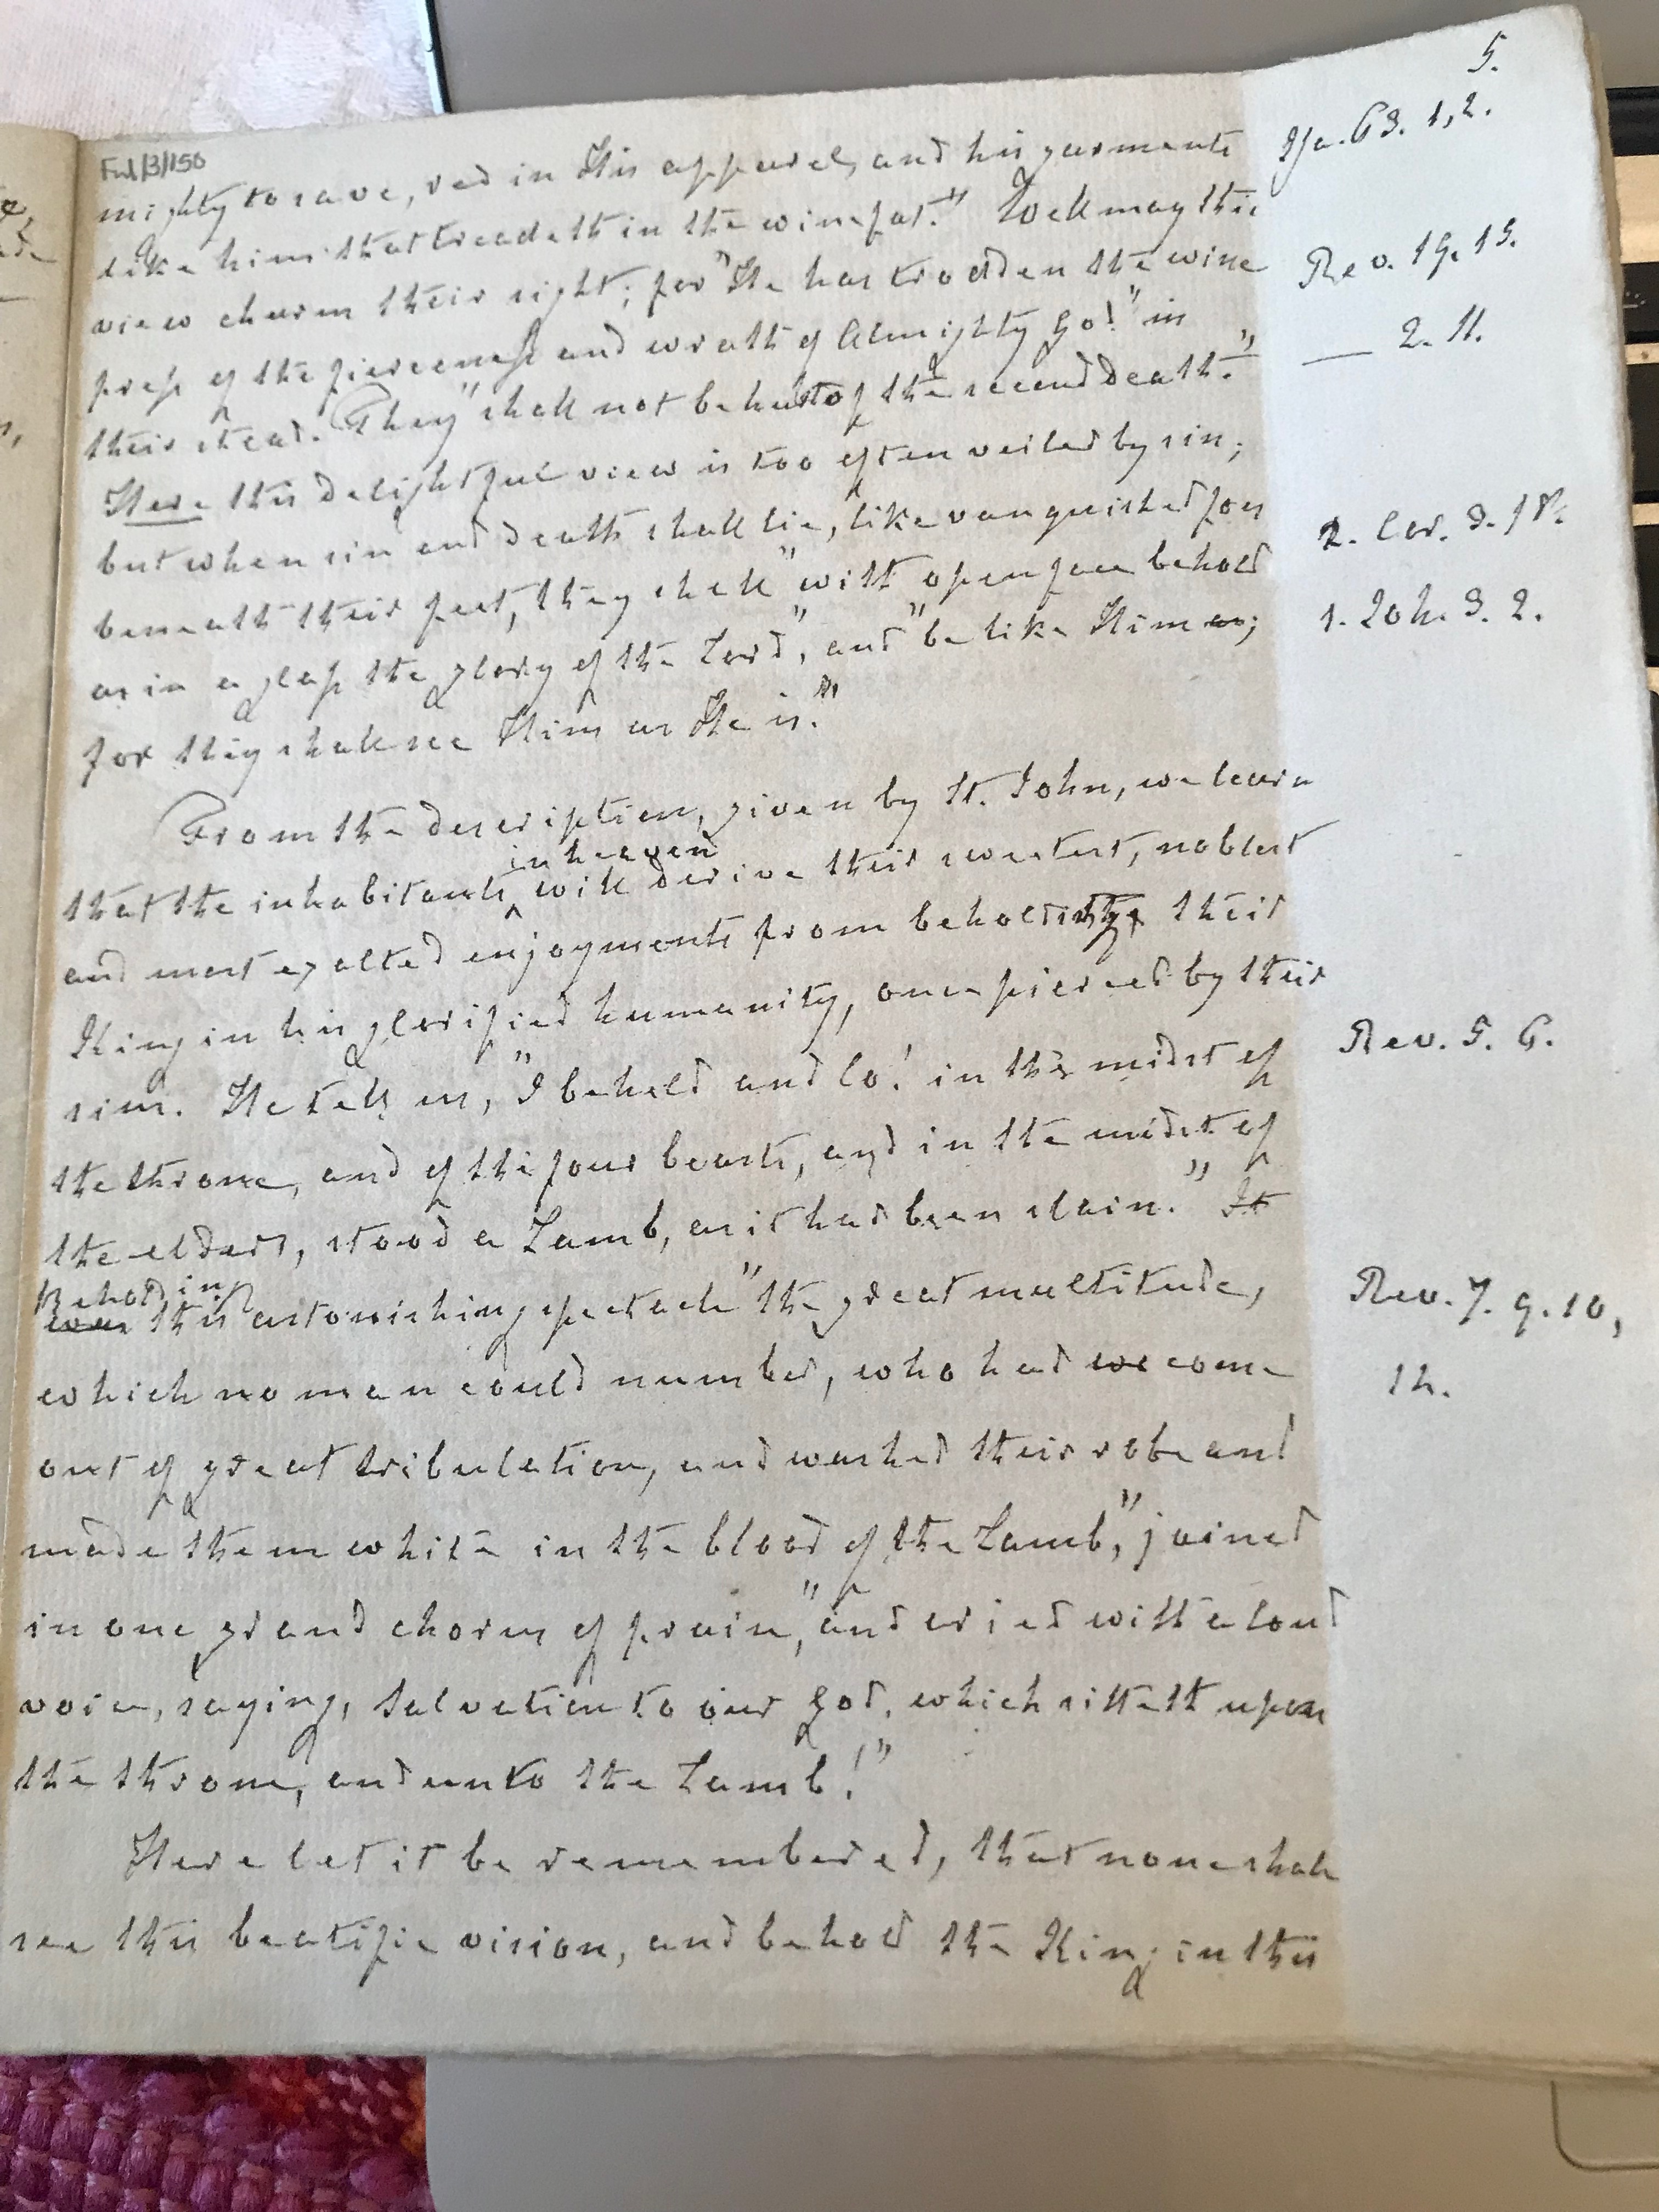 5.
Ful/3/150
mighty to save, red in His apparel, and his garments Isa. 63. 1,2.
like him that treadeth in the winefat." Well may this
view charm their sight; for "He has trodden the wine Rev. 19. 15.
press of the fierceness and wrath of Almighty God" in
their stead. They "shall not be hurt of the second death." — 2. 11.
Here this delightful view is too often veiled by sin;
but when sin and death shall lie, like vanquished foes
beneath their feet, they shall "with open face behold 2. Cor. 3. 18.
as in a glass the glory of the Lord", and "be like Him; 1. Joh. 3. 2.
for they shall see Him as He is."
From the description, given by St. John, we learn
in heaven
that the inhabitants ^ will derive their sweetest, noblest
and most exalted enjoyments from beholding their
King in his glorified humanity, once pierced by their
sins. He tells us, "I beheld and lo! in the midst of Rev. 5. 6.
the throne, and of the four beasts, and in the midst of
the elders, stood a Lamb, as it had been slain." It
Beholding
was this astonishing spectacle "the great multitude, Rev. 7. 9. 10,
which no man could number, who had we come 14.
out of great tribulation, and washed their robe and
made them white in the blood of the Lamb," joined
in one grand chorus of praise, "and cried with a loud
voice, saying, Salvation to our God, which sitteth upon
the throne, and unto the Lamb!"
Here let it be remembered, that none shall
see this beatific vision, and behold the King in this